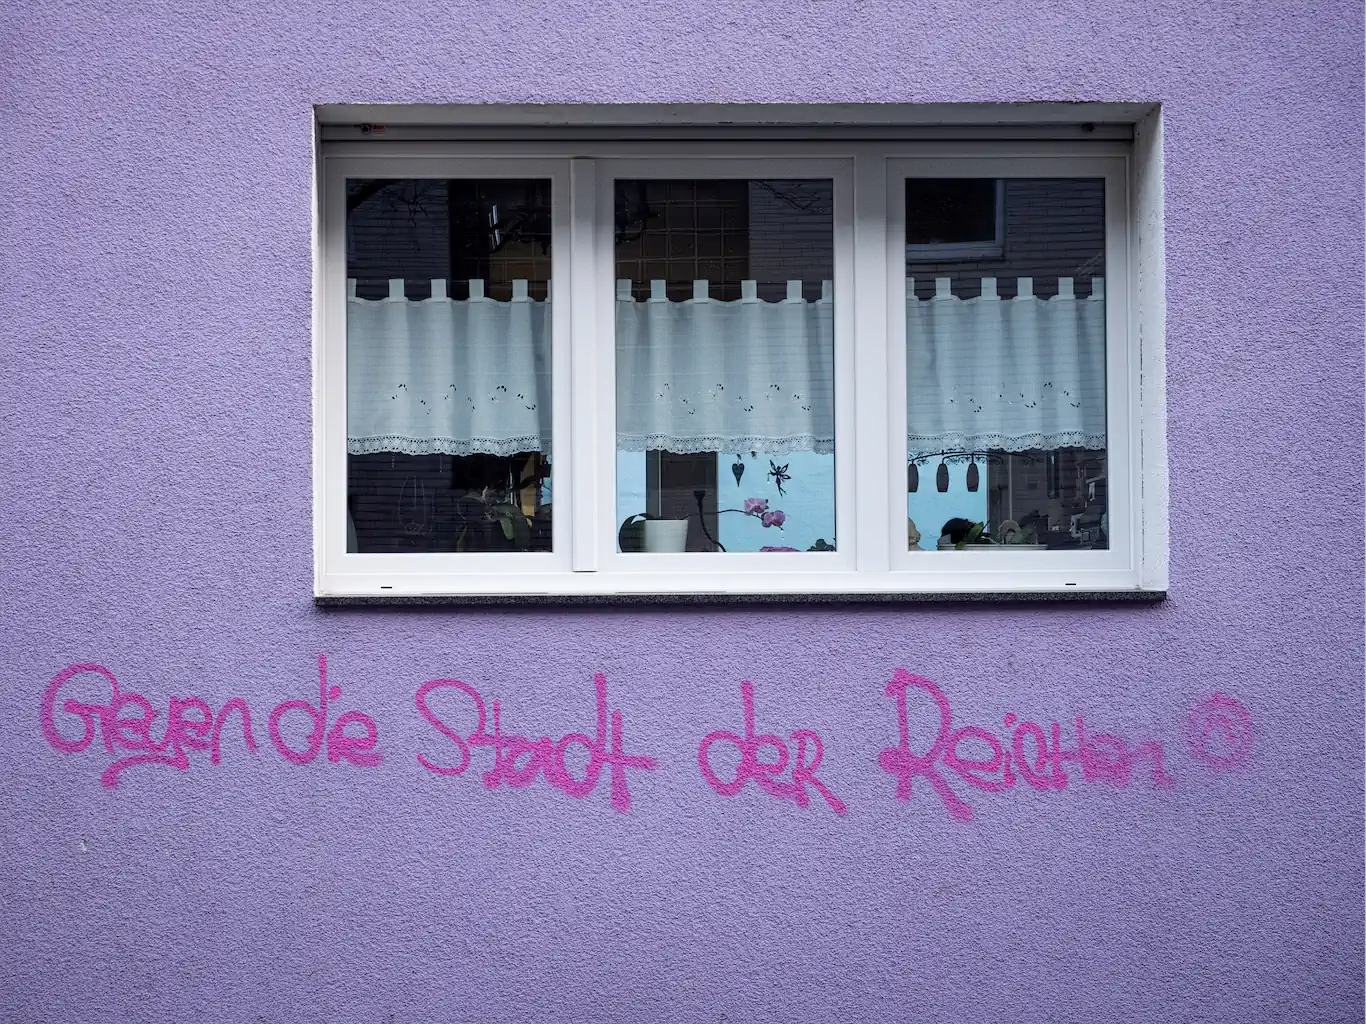 Gegen die Stadt der Reichen